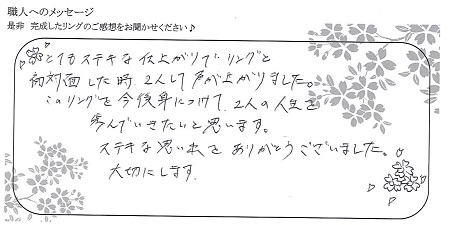 職人へのメッセージ
是非 完成したリングのご感想をお聞かせください♪
とてもステキな仕上がりで、リングと
初対面した時、2人して声が上がりました。
このリングを今後身につけて、2人の人生を
歩んでいきたいと思います。
ステキな思い出をありがとうございました。
大切にします。